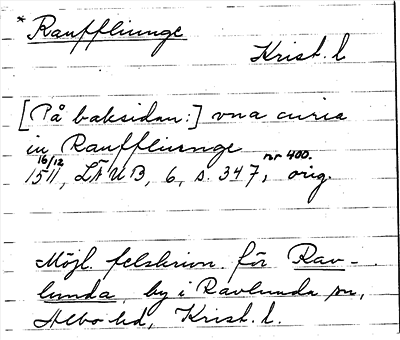 * Rauffliunge
Krist. l
[På baksidan:] vna curia
in Rauffliunge
16/12 1511, LÄUB, 6, s. 347, nr 400. orig.
Möjl. felskrivn. för Rav-
lunda, by i Ravlunda sn,
Albo hd, Krist. l.